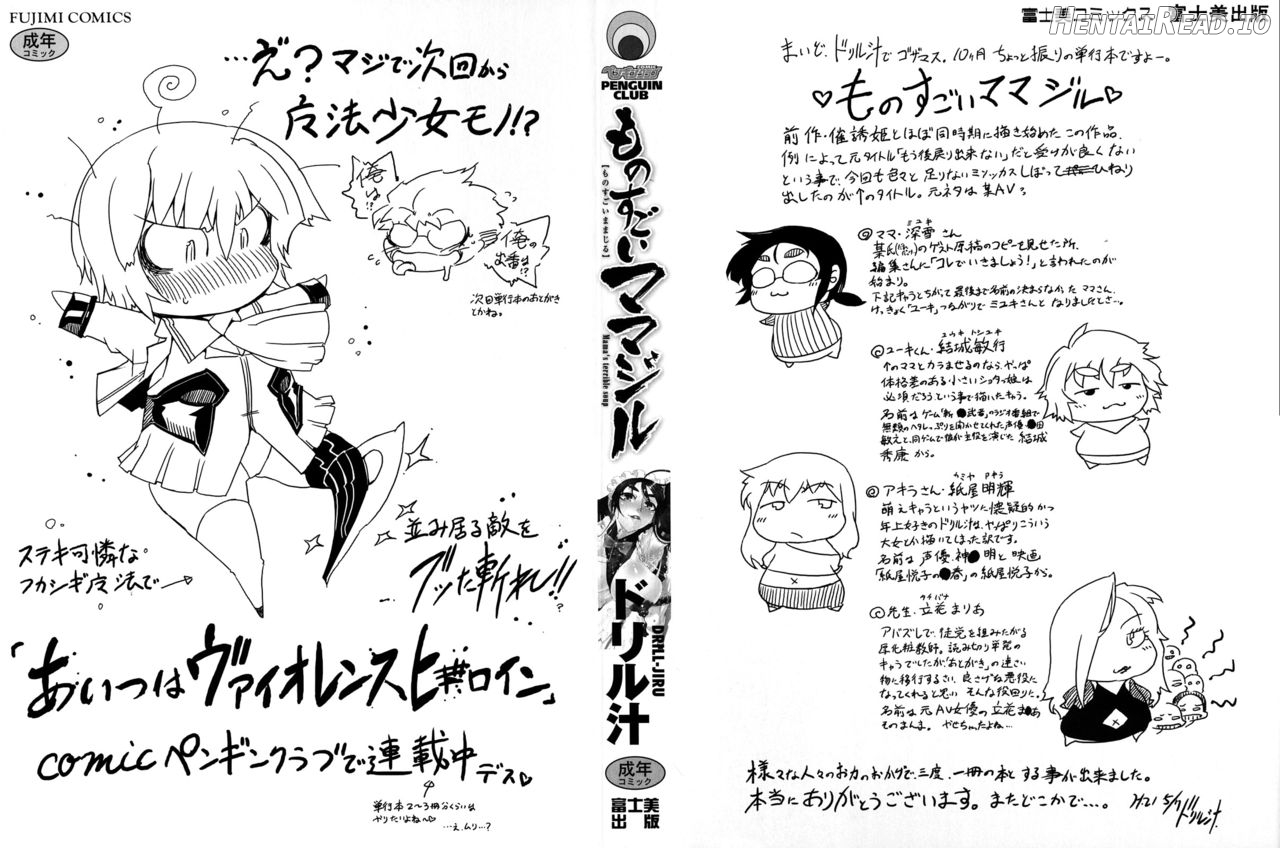 FUJIMI COMICS
成年
コミック
…え？マジで次回から
广法少女モノ!?
俺は!?
俺の
お番は!?
次回単行本のあとがき
とかね。
ステキ可憐な
フカシギ广法で
並み居る敵を
ブッた斬れ!!
「あいつはヴァイオレンスヒロイン」
comicペンギンクラブで連載中デス♡
単行本2〜3冊分くらいは
やりたいよね〜
…え、ムリ…?
COMIC
PENGUIN
CLUB
ものすごいママジル
【ものすごいままじる】
Mama's terrible soup
ドリル汁
DRILL-JIRU
成年
コミック
富士美
出版
富士美コミックス 富士美出版
HentaiRead.io
まいど、ドリル汁でゴザマス。10ヶ月ちょっと振りの単行本ですよー。
♡ものすごいママジル♡
前作・催誘姫とほぼ同時期に描き始めたこの作品、
例によって元タイトル「もう後戻り出来ない」だと受けが良くない
という事で、今回も色々と足りないミソッカスしぼってひねり
出したのが↑のタイトル。元ネタは某AV
ママ・深雪さん
ミユキ
のゲスト原稿のコピーを見せた所、
編集さんに「コレでいきましょう!」と言われたのが
始まり。
下記キャラとちがって最後まで名前の決まらなかったママさん、
けっきょく「ユーキ」つながりでミユキさんとなりましたとさ…。
ユウキ トシユキ
ユーキくん・結城敏行
↑のママとカラませるのなら、やっぱ
体格差のある小さいショタっ娘は
必須だろうという事で描いたキャラ。
名前はゲーム「斬●武者」のラジオ番組で
無類のヘタレっぷりを聞かせてくれた声優・●田
敏えと、同ゲームで彼が主役を演じた結城
秀康から。
カミヤ アキラ
アキラさん・紙屋明輝
萌えキャラというヤツに懐疑的かつ
年上好きのドリル汁、やっぱりこういう
大女しか描いてしまった訳です。
名前は声優・神●明と映画
「紙屋悦子の●春」の紙屋悦子から。
タチバナ
先生・立花まりあ
アバズレで、徒党を組みたがる
厚化粧教師。読み切り単発の
キャラでしたが「あとがき」の迷さい
物に移行するさい、良さげな悪役に
なってくれると思いそんな役回りに。
名前は元AV女優の立花ま●あ
そのまんま。やせちゃったよね…
様々な人々のお力のおかげで、三度、一冊の本とする事が出来ました。
本当にありがとうございます。またどこかで…。
H21 5/7 ドリル汁